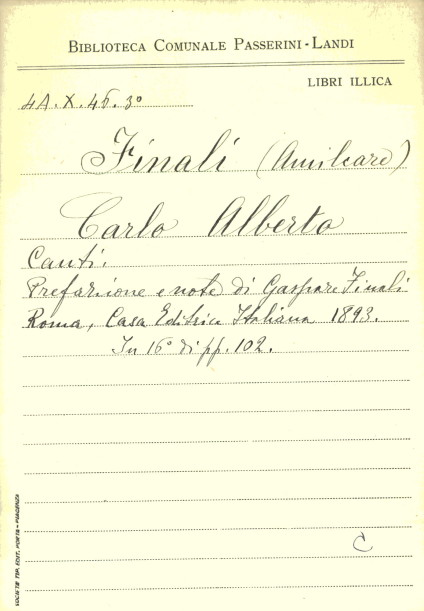 BIBLIOTECA COMUNALE PASSERINI-LANDI
LIBRI ILLICA
4A.X.46.3°
Finali (Amilcare)
Carlo Alberto
Canti.
Prefazione e note di Gaspare Finali
Roma, Casa Editrice Italiana 1893.
In 16° di pp. 102.
C
SOCIETÀ TIP. EDIT. PORTA - PIACENZA